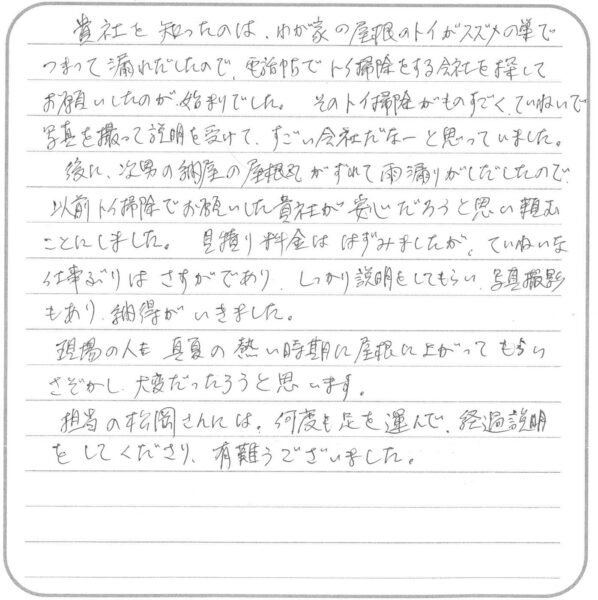 貴社を知ったのは、わが家の屋根のトイがスズメの巣で
つまって漏れだしたので、電話帖でトイ掃除をする会社を探して
お願いしたのが始まりでした。 そのトイ掃除がものすごくていねいで
写真を撮って説明を受けて、すごい会社だなーと思っていました。
後に、次男の納屋の屋根瓦がずれて雨漏りがしだしたので、
以前トイ掃除でお願いした貴社が安心だろうと思い頼む
ことにしました。 見積り料金ははずみましたが、ていねいな
仕事ぶりはさすがであり、しっかり説明をしてもらい、写真撮影
もあり、納得がいきました。
現場の人も真夏の熱い時期に屋根に上がってもらい
さぞかし大変だったろうと思います。
担当の松岡さんには、何度も足を運んで、経過説明
をしてくださり、有難うございました。